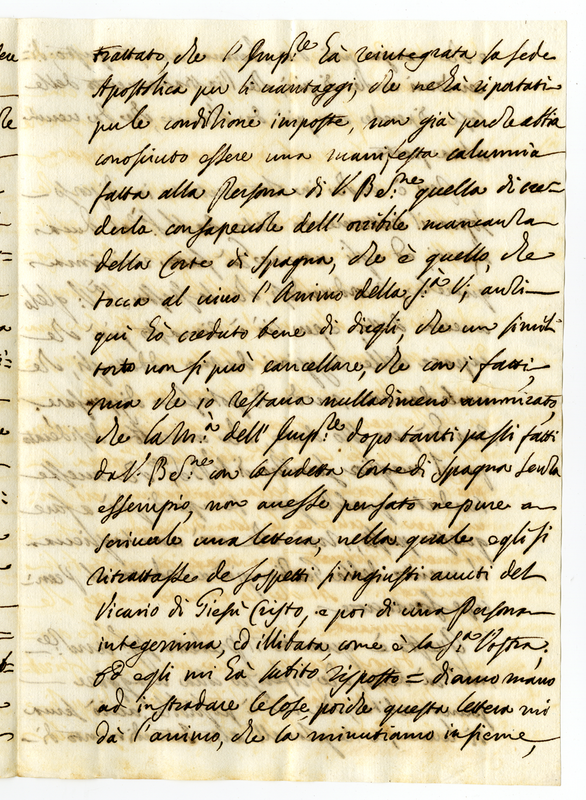 trattato, che l'Imp.re hà reintegrata la sede
Apostolica per li vantaggi, che ne hà riportati
per le condizioni imposte, non già perche abbia
conosciuto essere una manifesta calunnia
fatta alla Persona di V. B.ne quella di cre=
derla consapevole dell'orribile mancanza
della Corte di Spagna, che è quello, che
tocca al vivo l'Animo della S.tà V., anzi
quì hò creduto bene di dirgli, che un simil
torto non si può cancellare, che con i fatti,
ma che io restava nulladimeno ammirato,
che la M.tà dell'Imp.re dopo tanti passi fatti
da V. B.ne con la sudetta Corte di Spagna senza
essempio, non avesse pensato nepure a
scrivecle una lettera, nella quale egli si
ritrattasse de sospetti si ingiusti avuti del
Vicario di Giesù Cristo, e poi di una Persona
integerrima, ed illibata come è la S.tà Vostra.
Ed egli mi hà subito risposto = diamo mano
ad instradare le cose, poiche questa lettera mi
dà l'animo, che la minutiamo insieme,